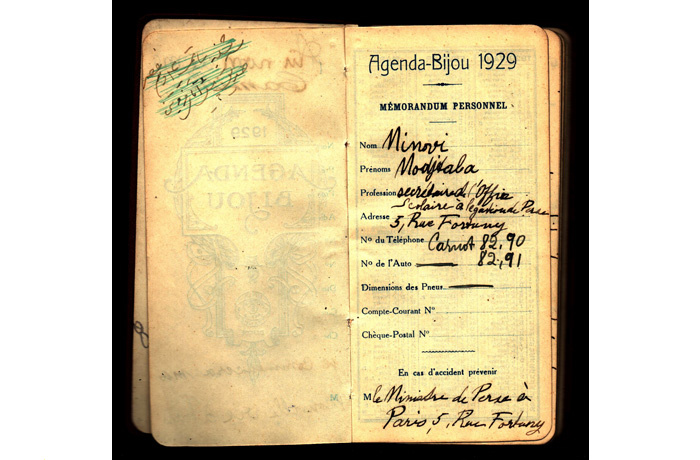 Agenda-Bijou 1929
MÉMORANDUM PERSONNEL
Nom Minovi
Prénoms Modjtaba
Profession secrétaire de l'Office
Scolaire à légation de Perse
Adresse 5, Rue Fortuny
No du Téléphone Carnot 82,90
No de l'Auto 82,91
Dimensions des Pneus
Compte-Courant No
Chèque-Postal No
En cas d'accident prévenir
M le Ministre de Perse à
Paris, 5, Rue Fortuny